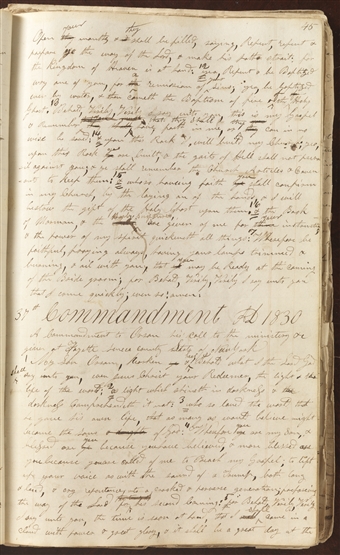 45
yours thy
Open ye mouths & they shall be filled saying, Repent, repent &
prepare ye the way of the Lord, & make his paths strait: for
the Kingdom of Heaven is at hand; 12 yea, Repent & be Baptized
evry one of you, for the remission of Sins; yea be baptized
even by water, & then cometh the Baptism of fire & the Holy
Ghost. 13 Behold, Verily, Verily I say unto you, this is my Gospel
& remember that they shall have faith in me or they can in no
wise be saved; 14 & upon this Rock I will build my Church; yea,
upon this Rock ye are built, & the gates of Hell shall not prevail
against you; & ye shall remember the Church Articles & Cove-
nants to keep them; 15 & whoso having faith ye shall confirm
in my Church, by the laying on of the hands, & I will
bestow the gift of the Holy Ghost upon them; 16 & the Book
of Mormon & the holy scriptures are given of me for your instruction;
& the power of my spirit quickeneth all things: 17 Wherefore be
faithful, praying always, having your lamps trimmed &
burning, & oil with you, that you may be Ready at the coming
of the Bride groom; for Behold, Verily, Verily I say unto you
that I come quickly; even so amen.
37th Commandment AD 1830
A Commandment to Orson his call to the ministery &c
given at Fayette Seneca County State of New York
My Son Orson, Hearken & hear & Behold what I the Lord God
shall say unto you, even Jesus Christ your Redeemer, the light & the
life of the world; 2 a light which shineth in darkness & the
darkness comprehendeth it not; 3 who so loved the world that
he gave his own life, that as many as would believe might
become the Sons of God; 4 Wherefore you are my Son, &
blessed are you because you have believed, & more blessed are
you because you are called of me to Preach my Gospel, to lift
up your voice as with the sound of a trump, both long
& loud, & cry repentance unto a crooked & perverse generation, preparing
the way of the Lord for his second coming; 5 for Behold, Verily, Verily
I say unto you, the time is soon at hand, that I shall come in a
cloud with power & great glory, & it shall be a great day at the